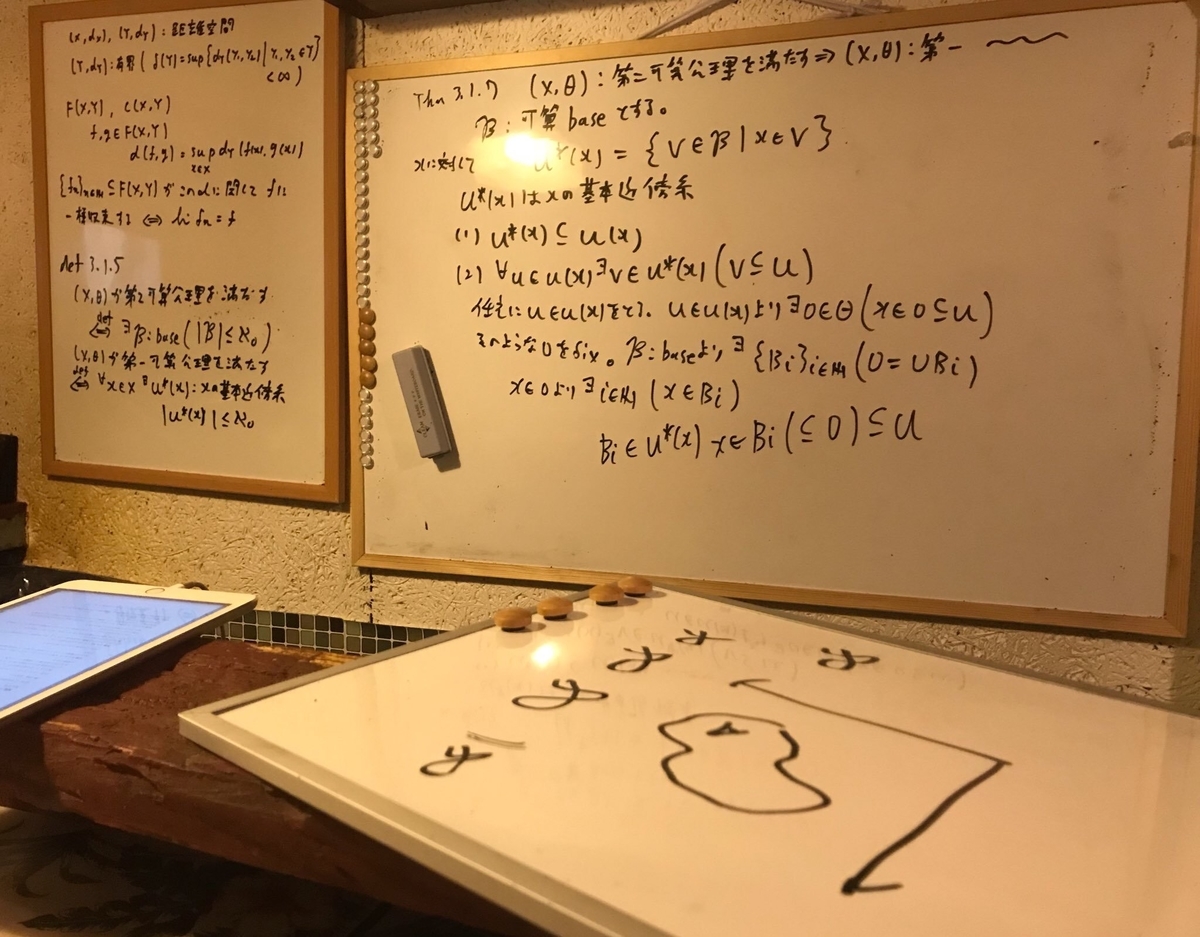 (X,dx), (Y,dY) : 距離空間
(Y,dY) : 有界 ( δ(Y)=sup{dY(Y1,Y2)|Y1,Y2∈Y}
<∞ )
F(X,Y) , C(X,Y)
f,g∈F(X,Y)
d(f,g) = sup dY(f(x),g(x))
x∈X
{fn}n∈ℕ⊆F(X,Y)がこのdに関して fに
一様収束する ⇔ lim fn = f
def 3.1.5
(X,θ)が第二可算公理を満たす
def
⇔ ∃B:base(|B|≤ℵ0)
(X,θ)が第一可算公理を満たす
def
⇔ ∀x∈X ∃U*(x):xの基本近傍系
|U*(x)|≤ℵ0
Thm 3.1.7 (X,θ) : 第二可算公理を満たす⇒(X,θ):第一 〜〜
B : 可算baseとする。
xに対して U*(x) = {V∈B|x∈V}.
U*(x)はxの基本近傍系
(1) U*(x)⊆U(x)
(2) ∀U∈U(x) ∃V∈U*(x) (V⊆U)
任意にU∈U(x)をとる。 U∈U(x)より ∃O∈θ(x∈O⊆U)
そのようなOをfix。 B:baseより ∃{Bi}i∈ℕ(O=∪Bi)
x∈Oより ∃i∈ℕ (x∈Bi)
Bi∈U*(x) x∈Bi(⊆O)⊆U
A